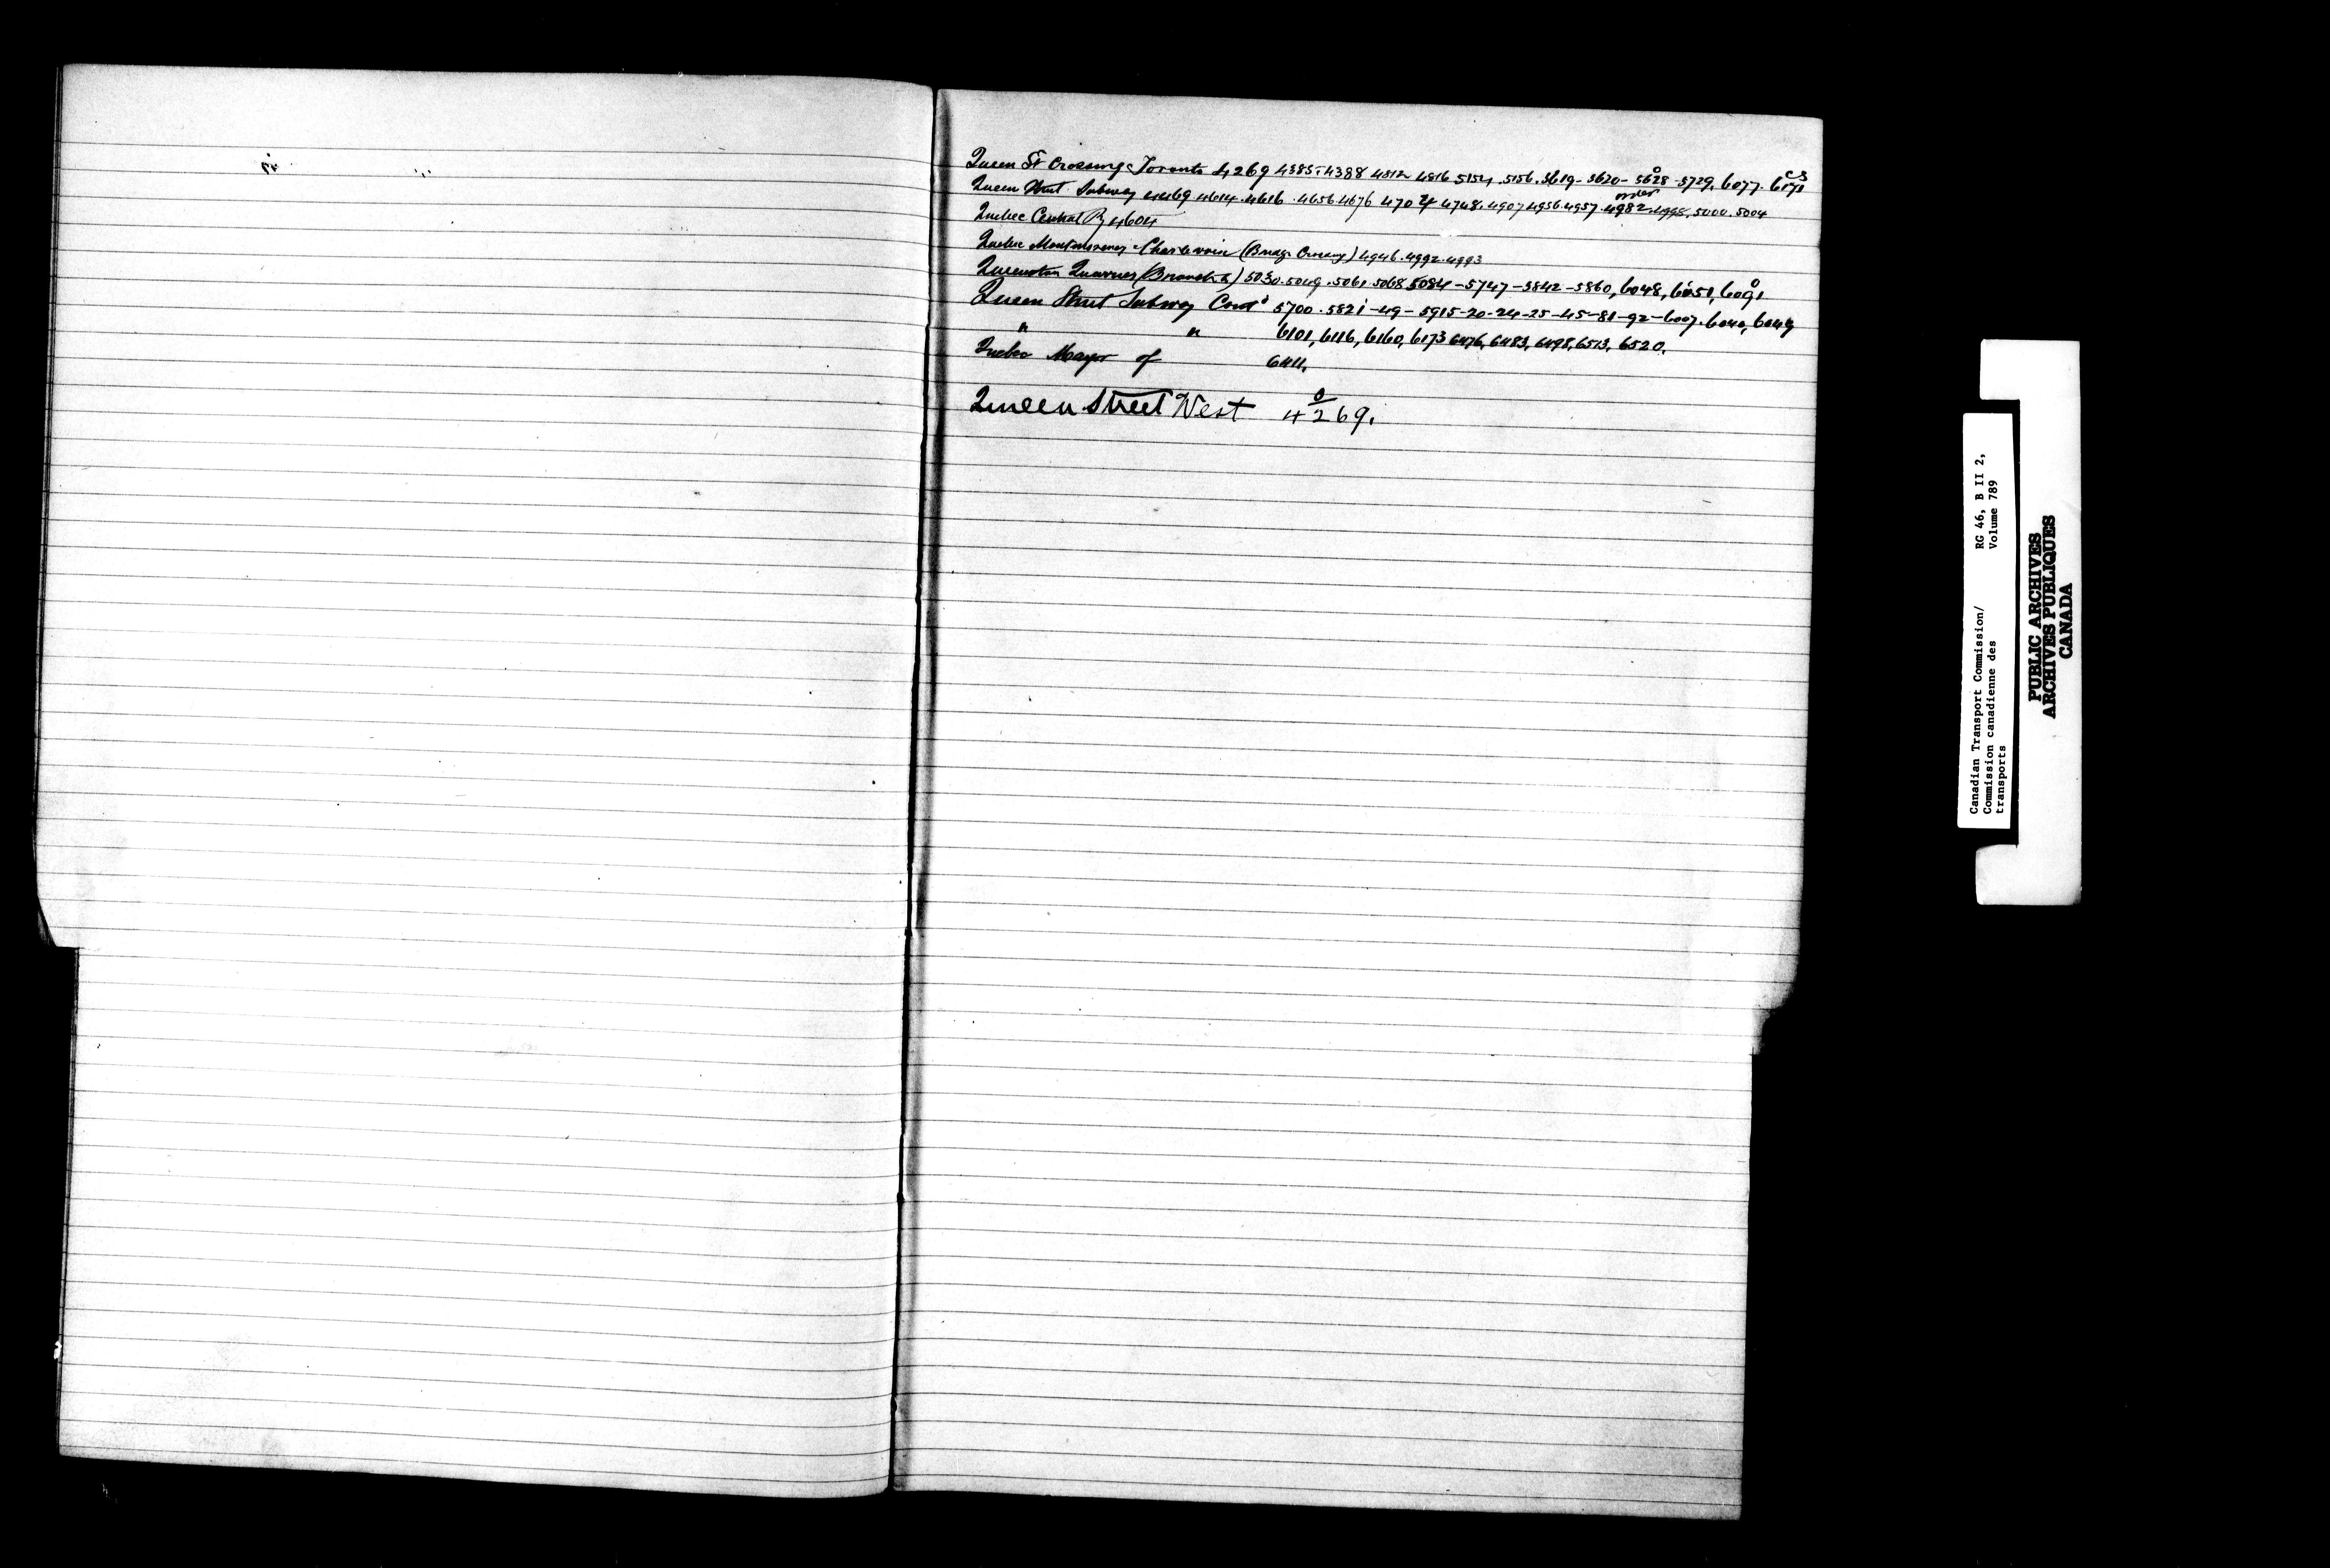 Queen St Crossing Toronto 4269 4385 4388 4812 4816 5154 5156 5619 - 5620 - 5628 - 5729, 6077. 6171
Queen Street Subway 4469 4614 4616 4656 4676 4704 4748 4907 4956 4957 4982 4998, 5000. 5004
over
Quebec Central Ry 4604
Quebec Montmorency & Charlevoix (Bridge Crossing) 4946. 4992. 4993
Queenston Quarries (Branch) 5030. 5049. 5061. 5068 5084 - 5747 - 5842 - 5860, 6048, 6051, 6091
Queen Street Subway Contd 5700. 5821 - 49 - 5915 - 20 - 24 - 25 - 45 - 81 - 92 - 6007. 6040, 6049
" " 6101, 6116, 6160, 6173 6476, 6483, 6498, 6513, 6520.
Quebec Mayor of 6411.
Queen Street West 4269.
Canadian Transport Commission/ RG 46, B II 2,
Commission canadienne des Volume 789
transports
PUBLIC ARCHIVES
ARCHIVES PUBLIQUES
CANADA